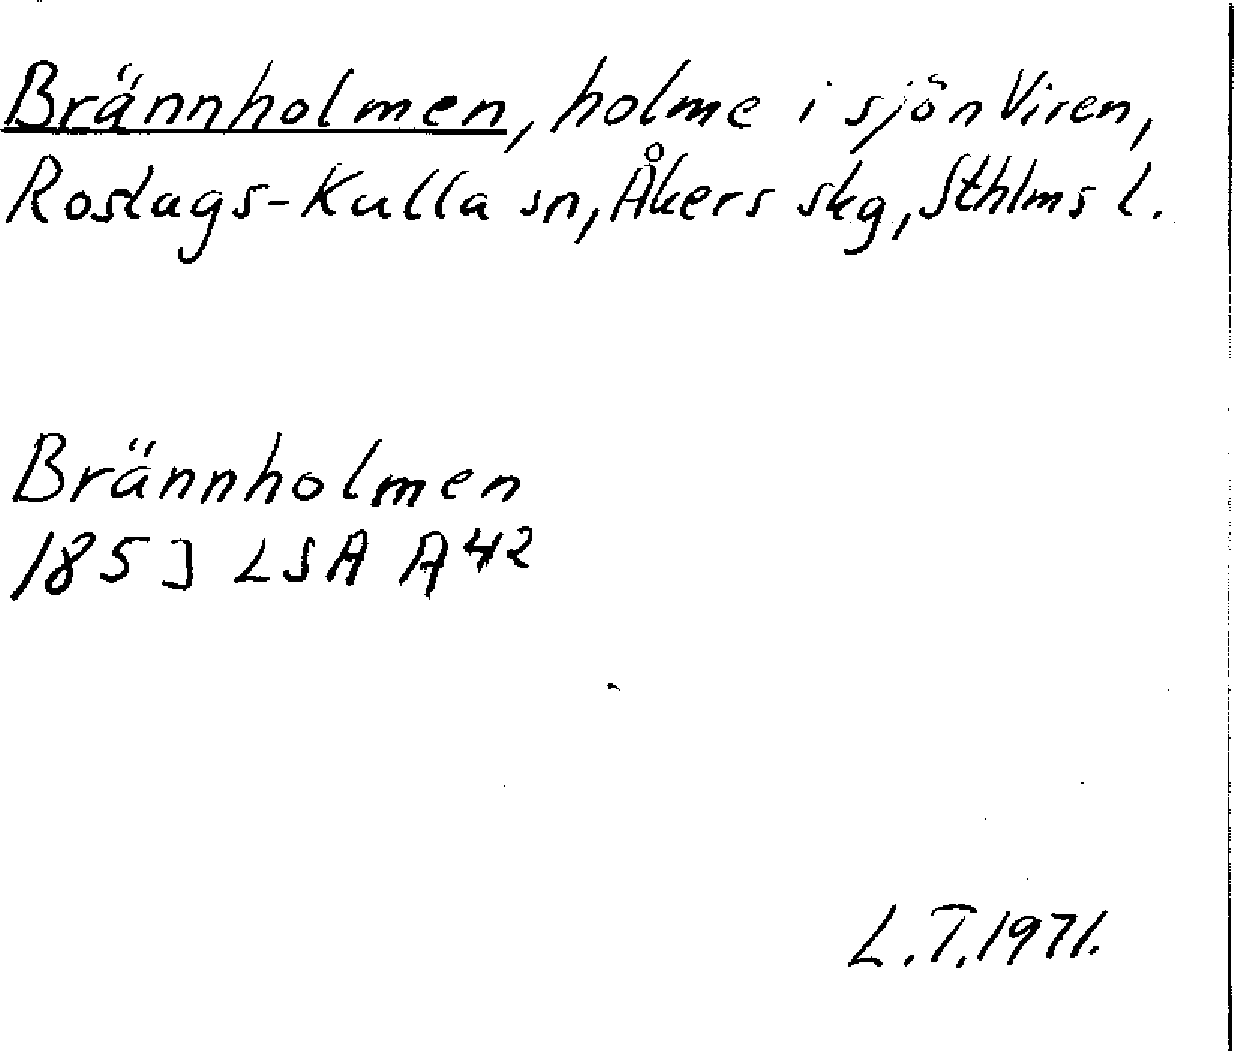 Brännholmen, holme i sjön Viren,
Roslags-Kulla sn, Åkers skg, Sthlms l.
Brännholmen
1853 LSA A42
L.T. 1971.